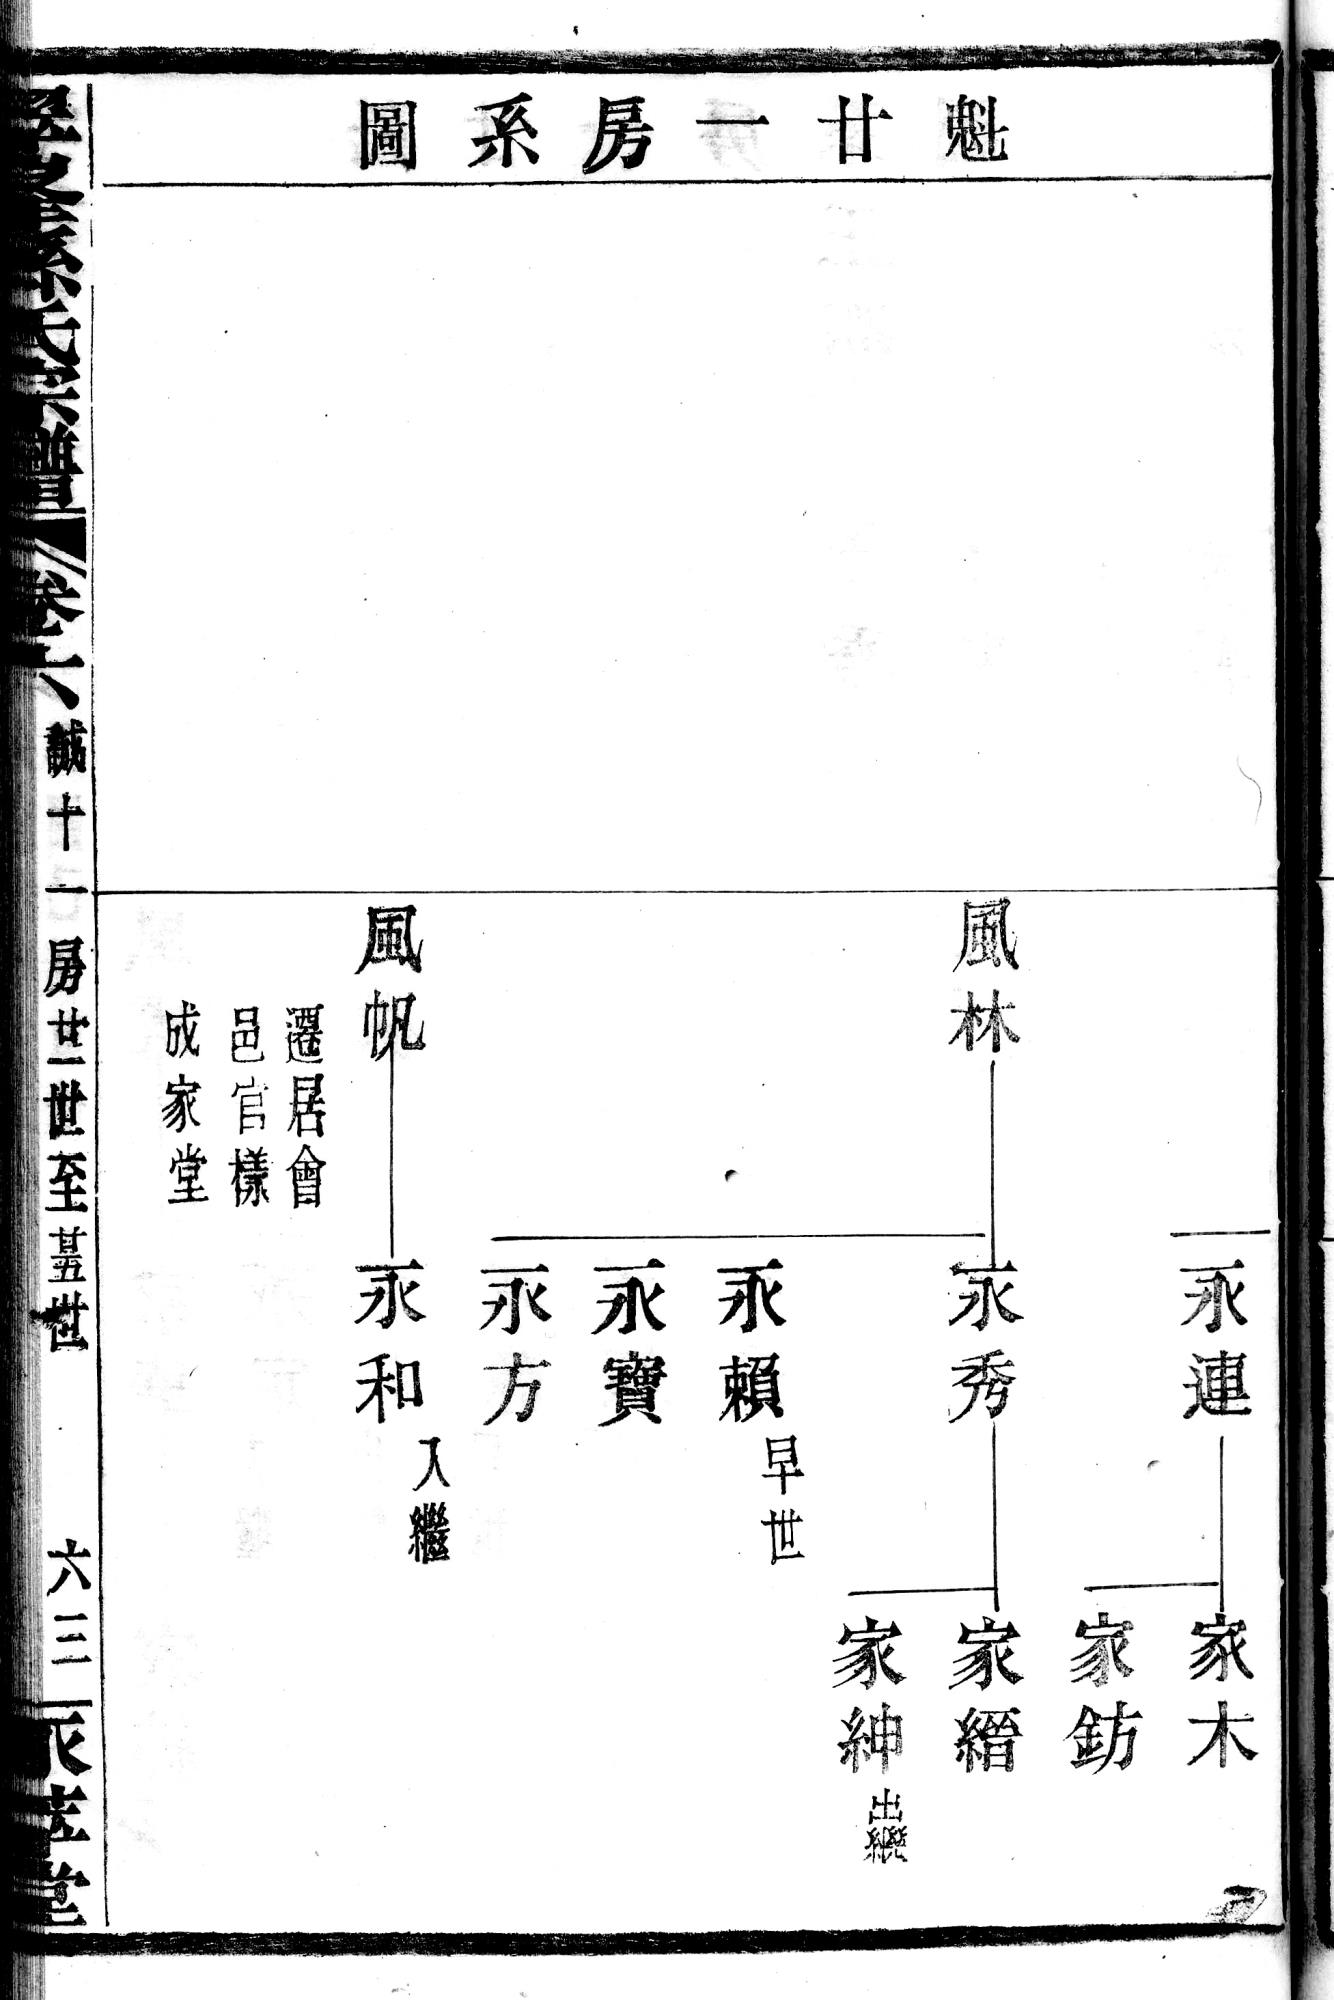 魁廿一房系圖
永連
家木
家鈁
風林
永秀
家縉
家紳 出繼
永賴 早世
永寶
永方
風帆
永和 入繼
遷居會
邑官樣
成家堂
孫氏宗譜
卷六
誠十一房廿一世至廿五世
六三
堂